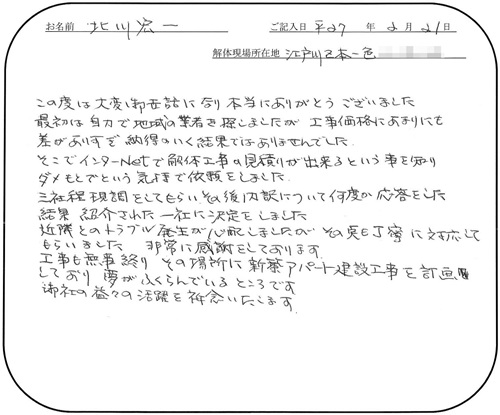 お名前 北川宏一 ご記入日 平27年2月21日
解体現場所在地 江戸川区本一色
この度は大変御世話に介り本当にありがとうございました
最初は自力で地域の業者を探しましたが 工事価格にあまりにも
差がありすぎ 納得のいく結果ではありませんでした.
そこでインターNetで解体工事の見積りが出来るという事を知り
ダメもとでという気持で依頼をしました.
三社程現調をしてもらいその後内訳について何度か応答をした
結果 紹介された一社に決定をしました
近隣とのトラブル発生が心配しましたが その点も丁寧に対応して
もらいました 非常に感謝をしております
工事も無事終り その場所に新築アパート建設工事を計画
しており 夢がふくらんでいるところです
御社の益々の活躍を祈念いたします